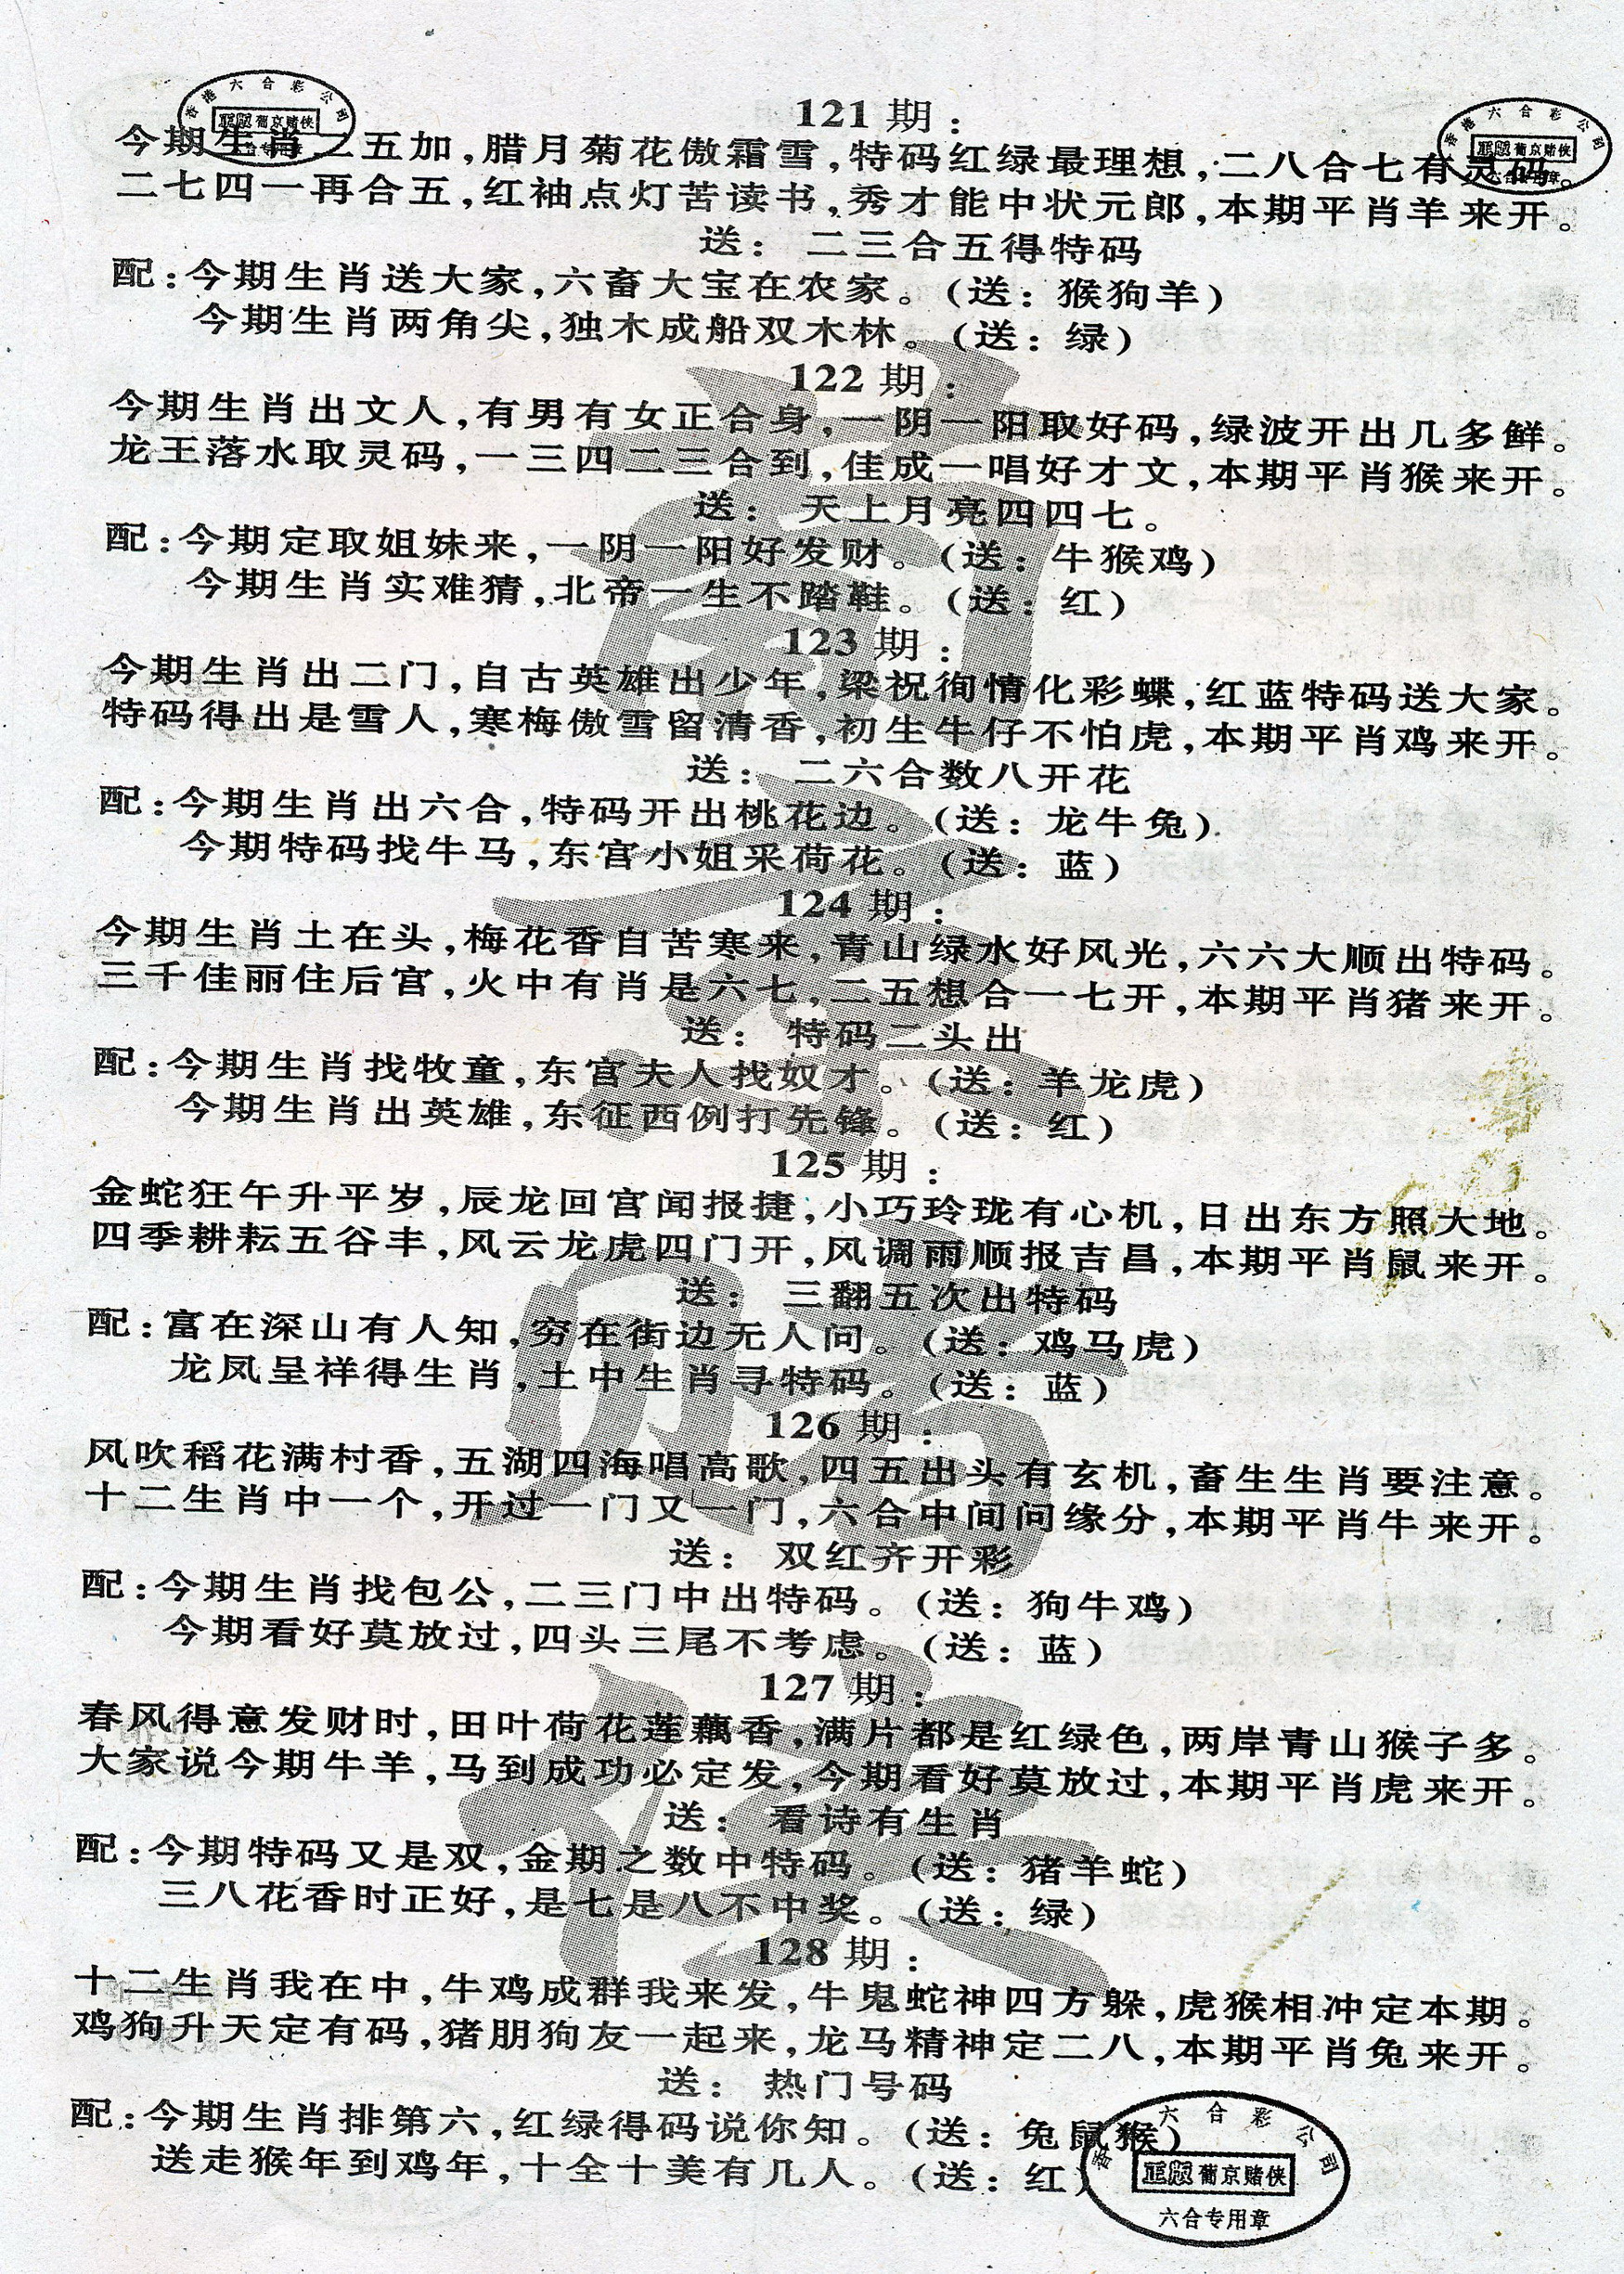 香港六合彩公司
正版 葡京赌侠
六合专用章
香港六合彩公司
正版 葡京赌侠
六合专用章
121期：
今期生肖二五加，腊月菊花傲霜雪，特码红绿最理想，二八合七有灵码。
二七四一再合五，红袖点灯苦读书，秀才能中状元郎，本期平肖羊来开。
送：二三合五得特码
配：今期生肖送大家，六畜大宝在农家。（送：猴狗羊）
今期生肖两角尖，独木成船双木林。（送：绿）
122期：
今期生肖出文人，有男有女正合身，一阴一阳取好码，绿波开出几多鲜。
龙王落水取灵码，一三四二三合到，佳成一唱好才文，本期平肖猴来开。
送：天上月亮四四七。
配：今期定取姐妹来，一阴一阳好发财。（送：牛猴鸡）
今期生肖实难猜，北帝一生不踏鞋。（送：红）
123期：
今期生肖出二门，自古英雄出少年，梁祝徇情化彩蝶，红蓝特码送大家。
特码得出是雪人，寒梅傲雪留清香，初生牛仔不怕虎，本期平肖鸡来开。
送：二六合数八开花
配：今期生肖出六合，特码开出桃花边。（送：龙牛兔）
今期特码找牛马，东宫小姐采荷花。（送：蓝）
124期：
今期生肖土在头，梅花香自苦寒来，青山绿水好风光，六六大顺出特码。
三千佳丽住后宫，火中有肖是六七，二五想合一七开，本期平肖猪来开。
送：特码二头出
配：今期生肖找牧童，东宫夫人找奴才。（送：羊龙虎）
今期生肖出英雄，东征西例打先锋。（送：红）
125期：
金蛇狂午升平岁，辰龙回宫闻报捷，小巧玲珑有心机，日出东方照大地。
四季耕耘五谷丰，风云龙虎四门开，风调雨顺报吉昌，本期平肖鼠来开。
送：三翻五次出特码
配：富在深山有人知，穷在街边无人问。（送：鸡马虎）
龙凤呈祥得生肖，土中生肖寻特码。（送：蓝）
126期：
风吹稻花满村香，五湖四海唱高歌，四五出头有玄机，畜生生肖要注意。
十二生肖中一个，开过一门又一门，六合中间问缘分，本期平肖牛来开。
送：双红齐开彩
配：今期生肖找包公，二三门中出特码。（送：狗牛鸡）
今期看好莫放过，四头三尾不考虑。（送：蓝）
127期：
春风得意发财时，田叶荷花莲藕香，满片都是红绿色，两岸青山猴子多。
大家说今期牛羊，马到成功必定发，今期看好莫放过，本期平肖虎来开。
送：看诗有生肖
配：今期特码又是双，金期之数中特码。（送：猪羊蛇）
三八花香时正好，是七是八不中奖。（送：绿）
128期：
十二生肖我在中，牛鸡成群我来发，牛鬼蛇神四方躲，虎猴相冲定本期。
鸡狗升天定有码，猪朋狗友一起来，龙马精神定二八，本期平肖兔来开。
送：热门号码
配：今期生肖排第六，红绿得码说你知。（送：兔鼠猴）
送走猴年到鸡年，十全十美有几人。（送：红）
香港六合彩公司
正版 葡京赌侠
六合专用章